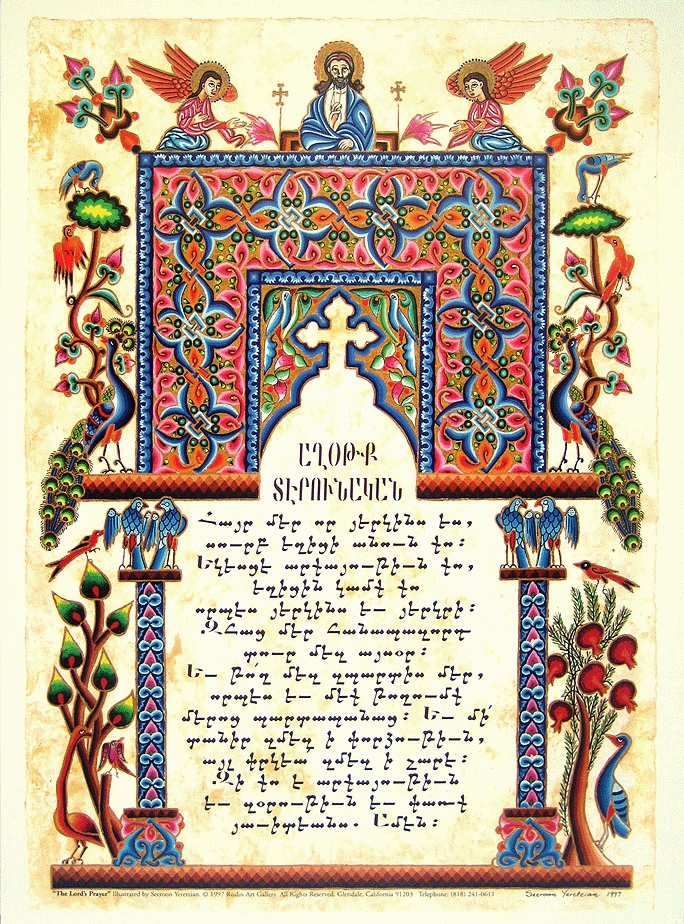 ԱՂՕԹՔ
ՏԷՐՈՒՆԱԿԱՆ
Հայր մեր որ յերկինս ես,
սուրբ եղիցի անուն քո։
Եկեսցէ արքայութիւն քո,
եղիցին կամք քո
որպէս յերկինս եւ յերկրի։
ԶՀաց մեր Հանապազորդ
տուր մեզ այսօր։
Եւ թո՛ղ մեզ զպարտիս մեր,
որպէս եւ մեք թողումք
մերոց պարտապանաց։ Եւ մի՛
տանիր զմեզ ի փորձութիւն,
այլ փրկեա զմեզ ի չարէ։
Զի քո է արքայութիւն
եւ զօրութիւն եւ փառք
յաւիտեանս. Ամէն։
"The Lord's Prayer" Illustrated by Seeroon Yeretzian. © 1997 Roslin Art Gallery. All Rights Reserved. Glendale, California 91203 Telephone: (818) 241-0611
Seeroon Yeretzian 1997